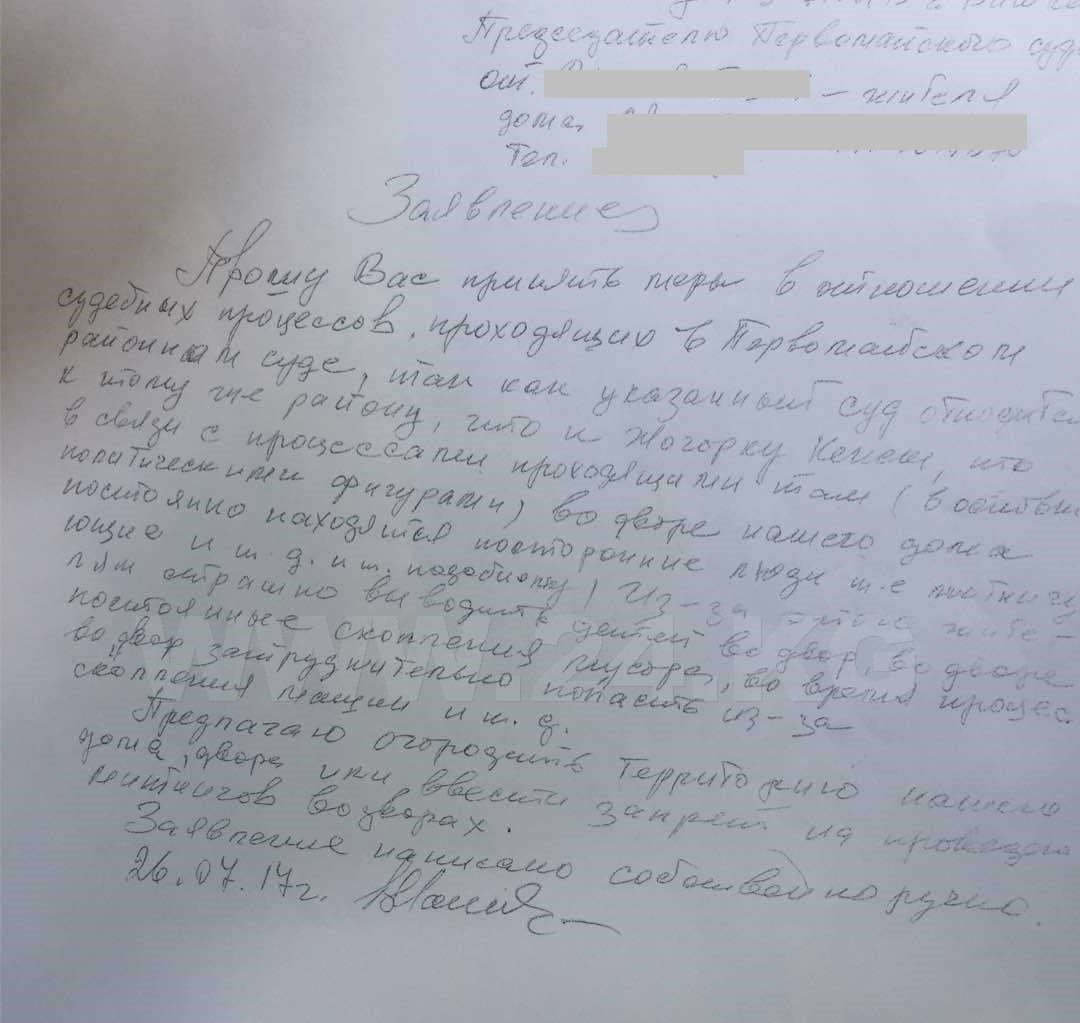 Председателю Первомайского суда
от.
– жителя
дома,
Тел.
Заявление
Прошу Вас принять меры в отношении
судебных процессов, проходящих в Первомайском
районном суде, так как указанный суд относится
к тому же району, что и Жогорку Кенеш, что
в связи с процессами проходящими там (
политическими фигурами) во дворе нашего дома
постоянно находятся посторонние люди т.е митингу
ющие и т. д. и т. подобному) Из-за этого жите-
лям страшно выводить детей во двор во дворе
постоянные скопления мусора, во время процес
во двор затруднительно попасть из-за
скопления машин и т. д.
Предлагаю огородить территорию нашего
дома, двора или ввести запрет на
митингов во дворах.
Заявление написано собственноручно.
26.07.17г.
www.24.kg